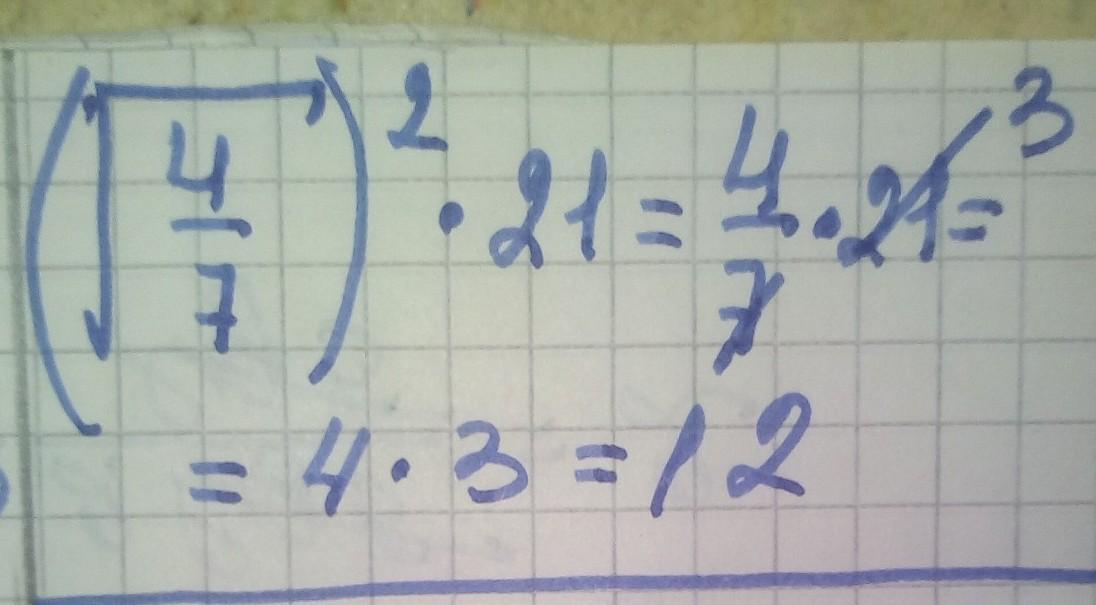 (√(4/7))² · 21 = 4/7 · 21 3 =
= 4 · 3 = 12